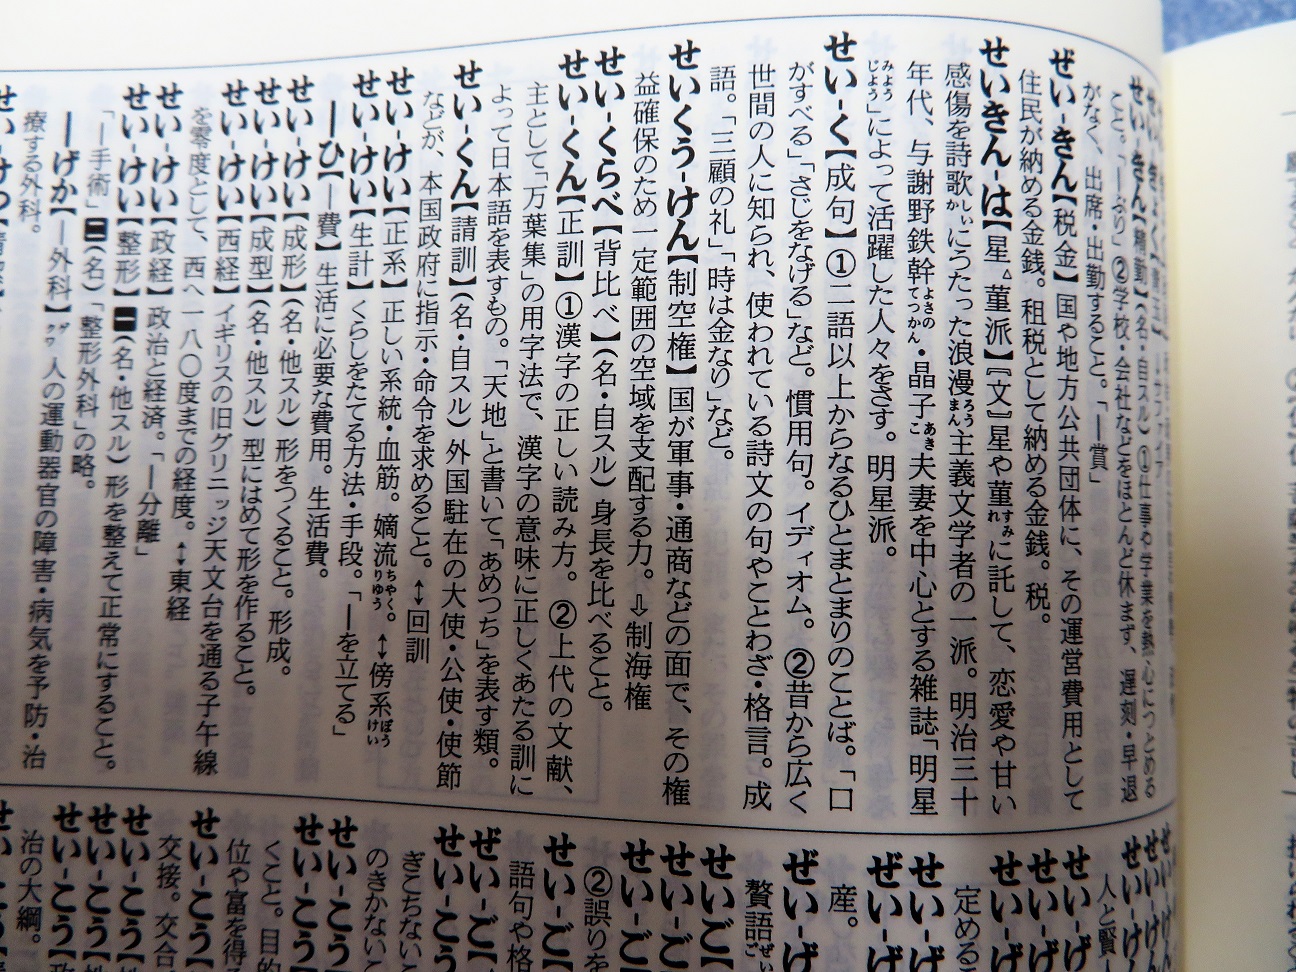 せい-きん【精勤】(名・自スル)①仕事や学業を熱心につとめる
こと。「―ぶり」②学校・会社などをほとんど休まず、遅刻・早退
がなく、出席・出勤すること。「―賞」
ぜい-きん【税金】国や地方公共団体に、その運営費用として
住民が納める金銭。租税として納める金銭。税。
せいきん-は【星△菫派】〘文〙星や菫すみれに託して、恋愛や甘い
感傷を詩歌しいかにうたった浪漫ろうまん主義文学者の一派。明治三十
年代、与謝野鉄幹よさのてっかん・晶子あきこ夫妻を中心とする雑誌「明星
みょうじょう」によって活躍した人々をさす。明星派。
せい-く【成句】①二語以上からなるひとまとまりのことば。「口
がすべる」「さじをなげる」など。慣用句。イディオム。②昔から広く
世間の人に知られ、使われている詩文の句やことわざ・格言。成
語。「三顧の礼」「時は金なり」など。
せいくう-けん【制空権】国が軍事・通商などの面で、その権
益確保のため一定範囲の空域を支配する力。⇩制海権
せい-くらべ【背比べ】(名・自スル)身長を比べること。
せい-くん【正訓】①漢字の正しい読み方。②上代の文献、
主として「万葉集」の用字法で、漢字の意味に正しくあたる訓に
よって日本語を表すもの。「天地」と書いて「あめつち」を表す類。
せい-くん【請訓】(名・自スル)外国駐在の大使・公使・使節
などが、本国政府に指示・命令を求めること。↔回訓
せい-けい【正系】正しい系統・血筋。嫡流ちゃくりゅう。↔傍系ぼうけい
せい-けい【生計】くらしをたてる方法・手段。「―を立てる」
―ひ【―費】生活に必要な費用。生活費。
せい-けい【成形】(名・他スル)形をつくること。形成。
せい-けい【成型】(名・他スル)型にはめて形を作ること。
せい-けい【西経】イギリスの旧グリニッジ天文台を通る子午線
を零度として、西へ一八〇度までの経度。↔東経
せい-けい【政経】政治と経済。「―分離」
せい-けい【整形】㊀(名・他スル)形を整えて正常にすること。
「―手術」㊁(名)「整形外科」の略。
―げか【―外科】ゲクワ 人の運動器官の障害・病気を予防・治
療する外科。
人と賢
せい-げ
せい-げ
せい-げ
定める
せい-げ
ぜい-げ
産。
ぜい-げ
贅語ぜいご
せいご【
せい-ご
せい-ご
②誤りを
せい-ご【
語句や格
ぜい-ご【
せい-こう
ぎこちない
のきかないこ
せい-こう
せい-こう
くこと。目的
位や富を得る
せい-こう【
交接。交合
せい-こう【
せい-こう【
せい-こう【政
治の大綱。